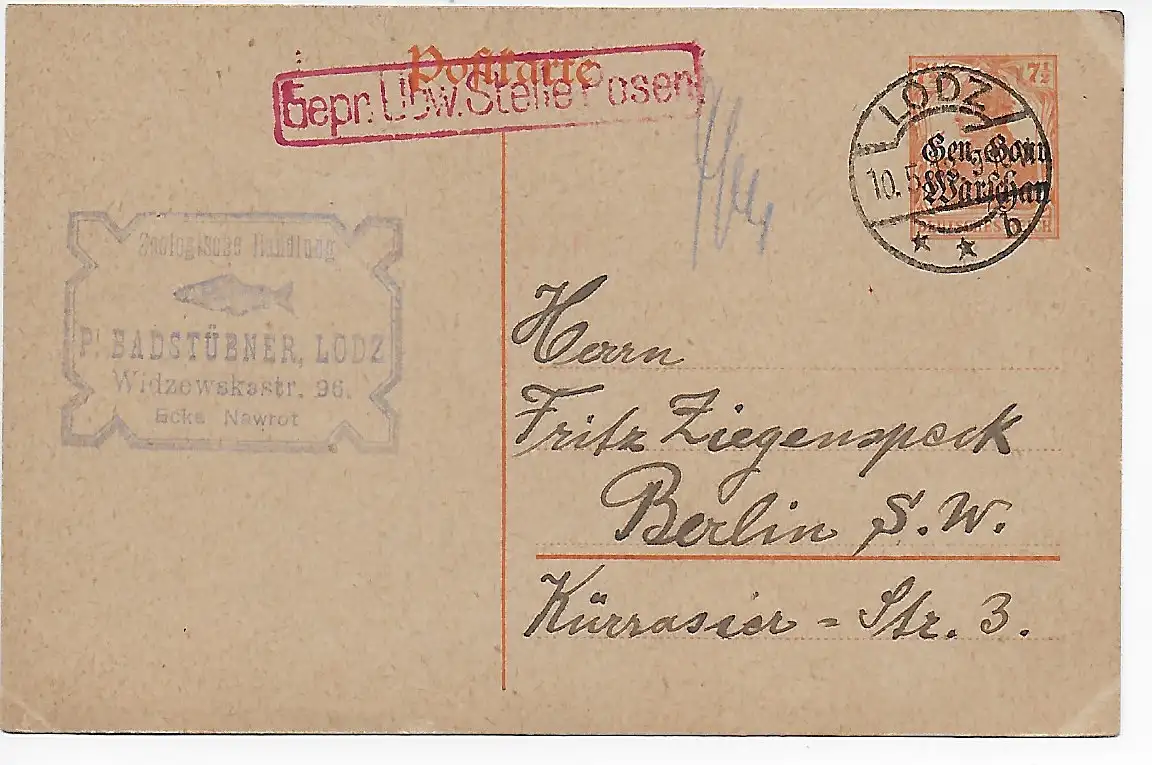 Postkarte
Gepr. Übw. Stelle Posen
7½
LODZ
10. 5.
Gen.-Gouv.
Warschau
DEUTSCHES REICH
b
Zoologische Handlung
P. BADSTÜBNER, LODZ
Widzewskastr. 96.
Ecke Nawrot
Herrn
Fritz Ziegenspeck
Berlin S.W.
Kürrasier-Str. 3.